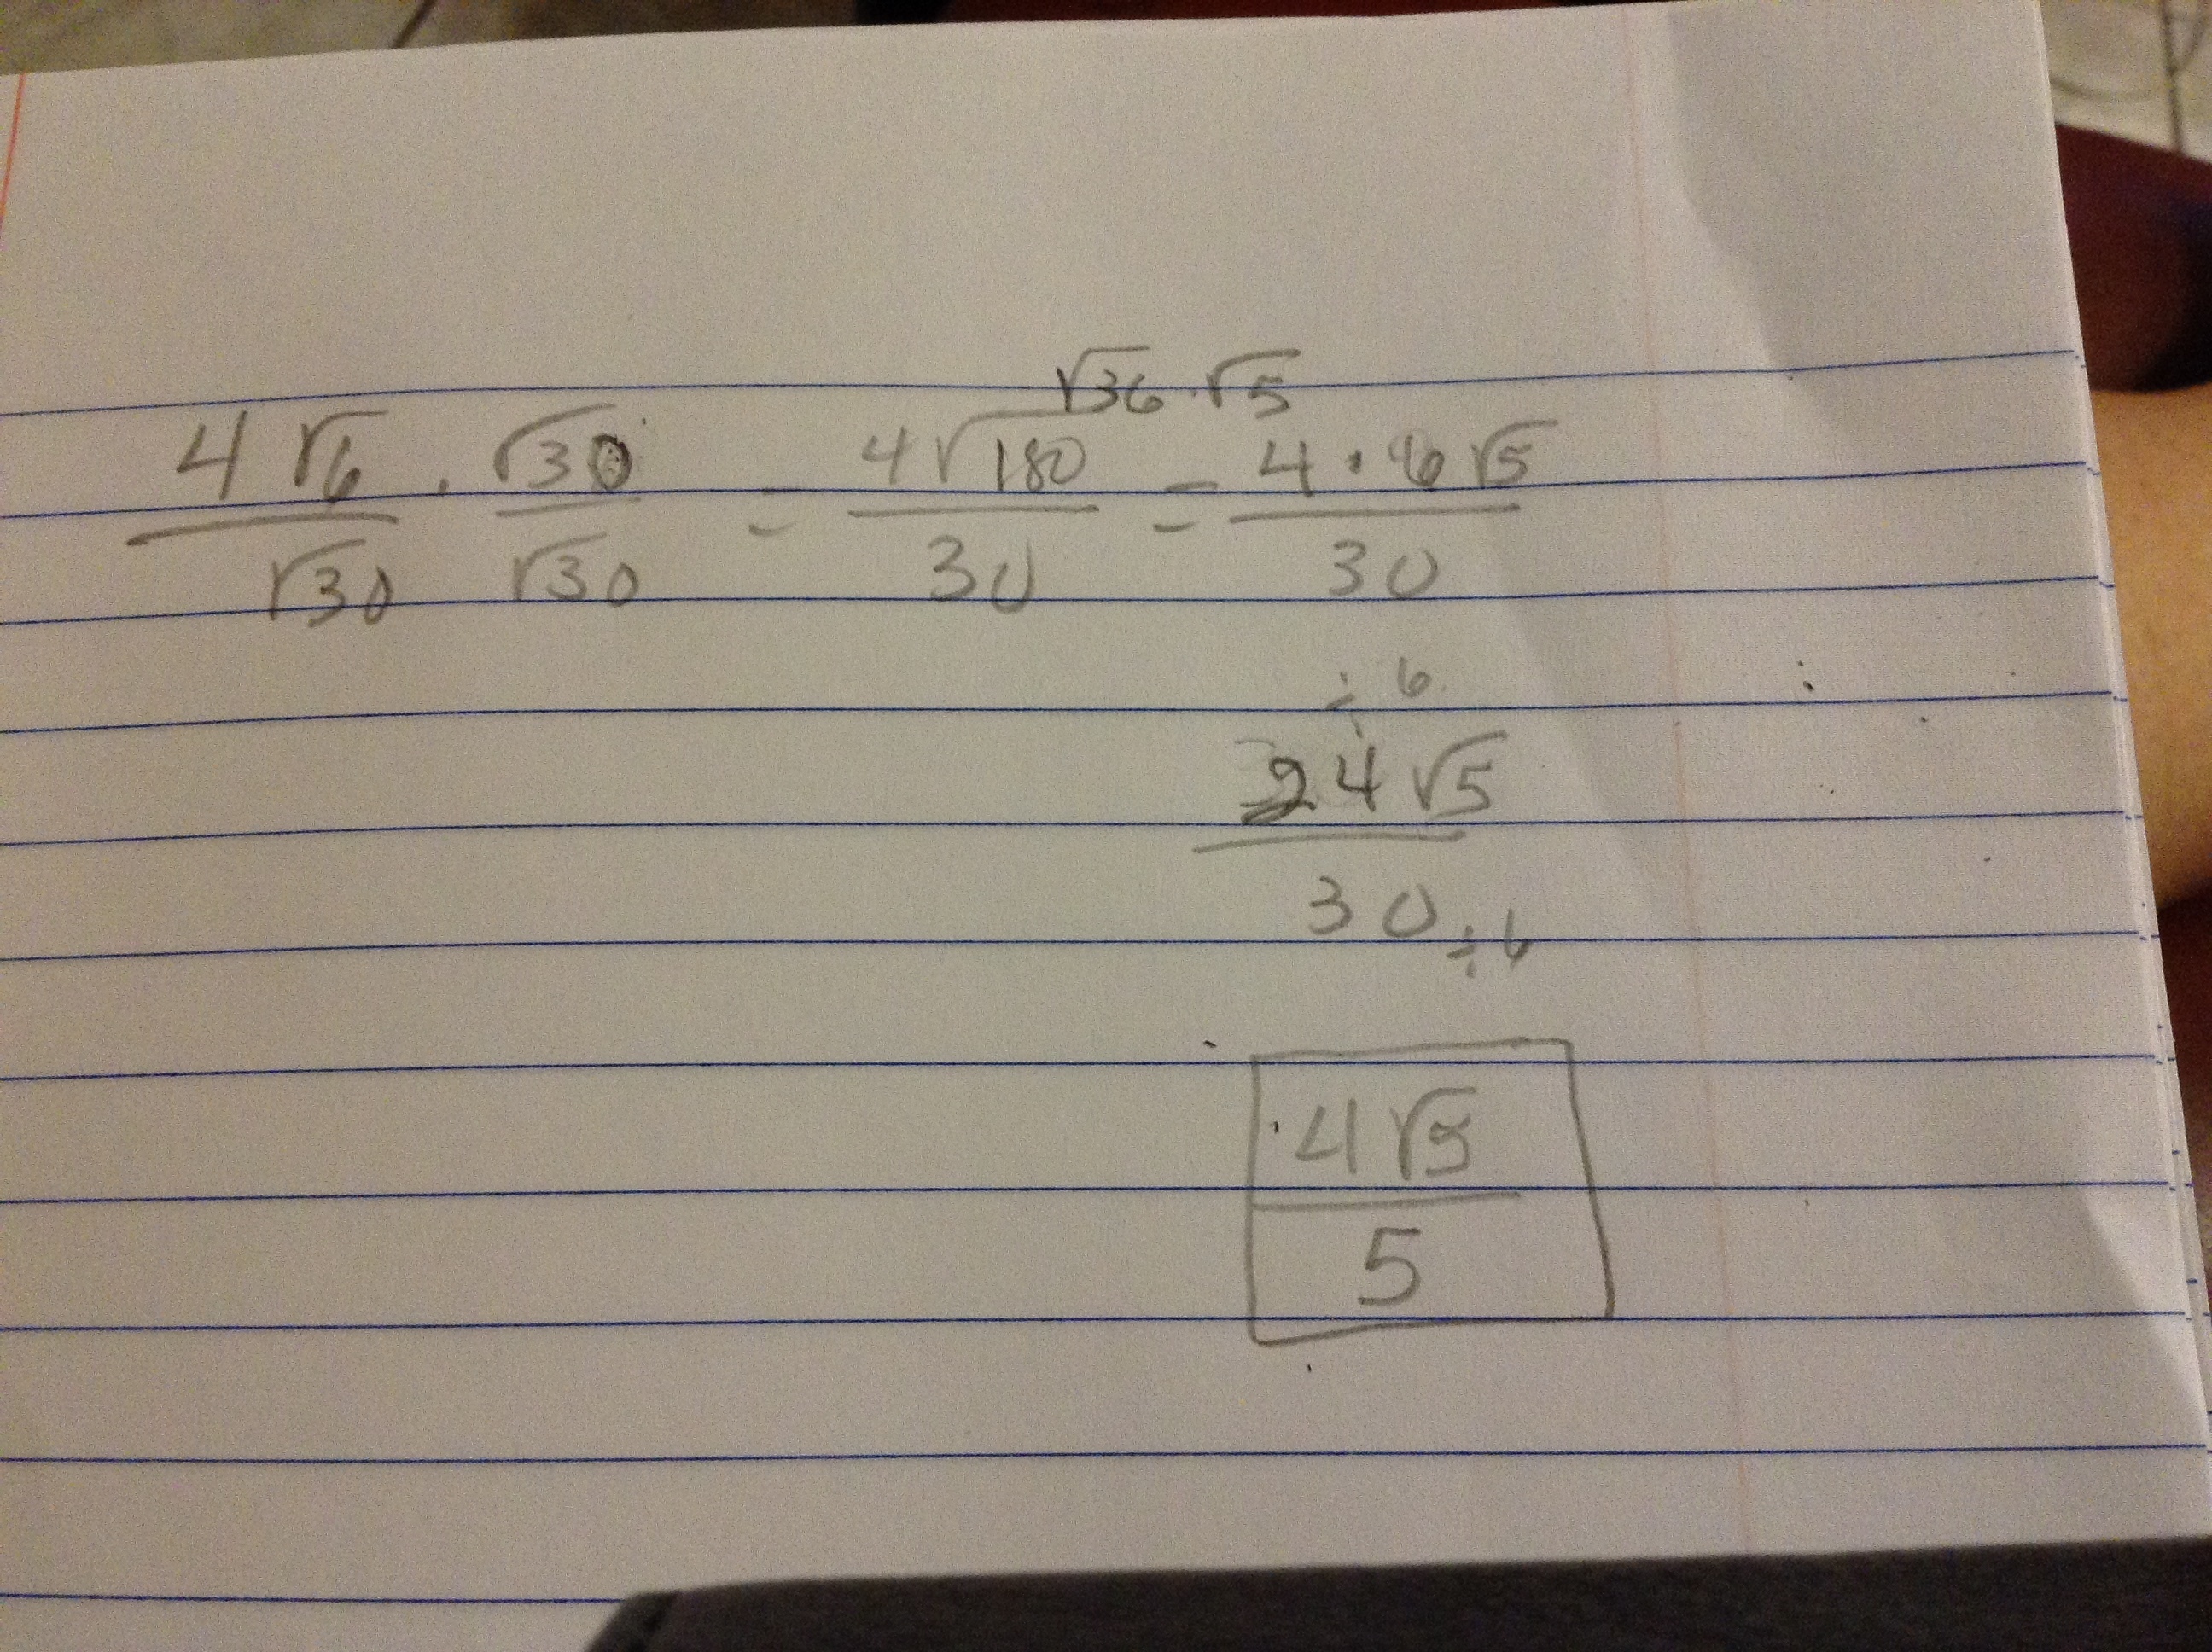 √36 · √5
4√6/√30 · √30/√30 = 4√180/30 = 4 · 6√5/30
÷ 6
24√5/30
÷ 6
4√5/5